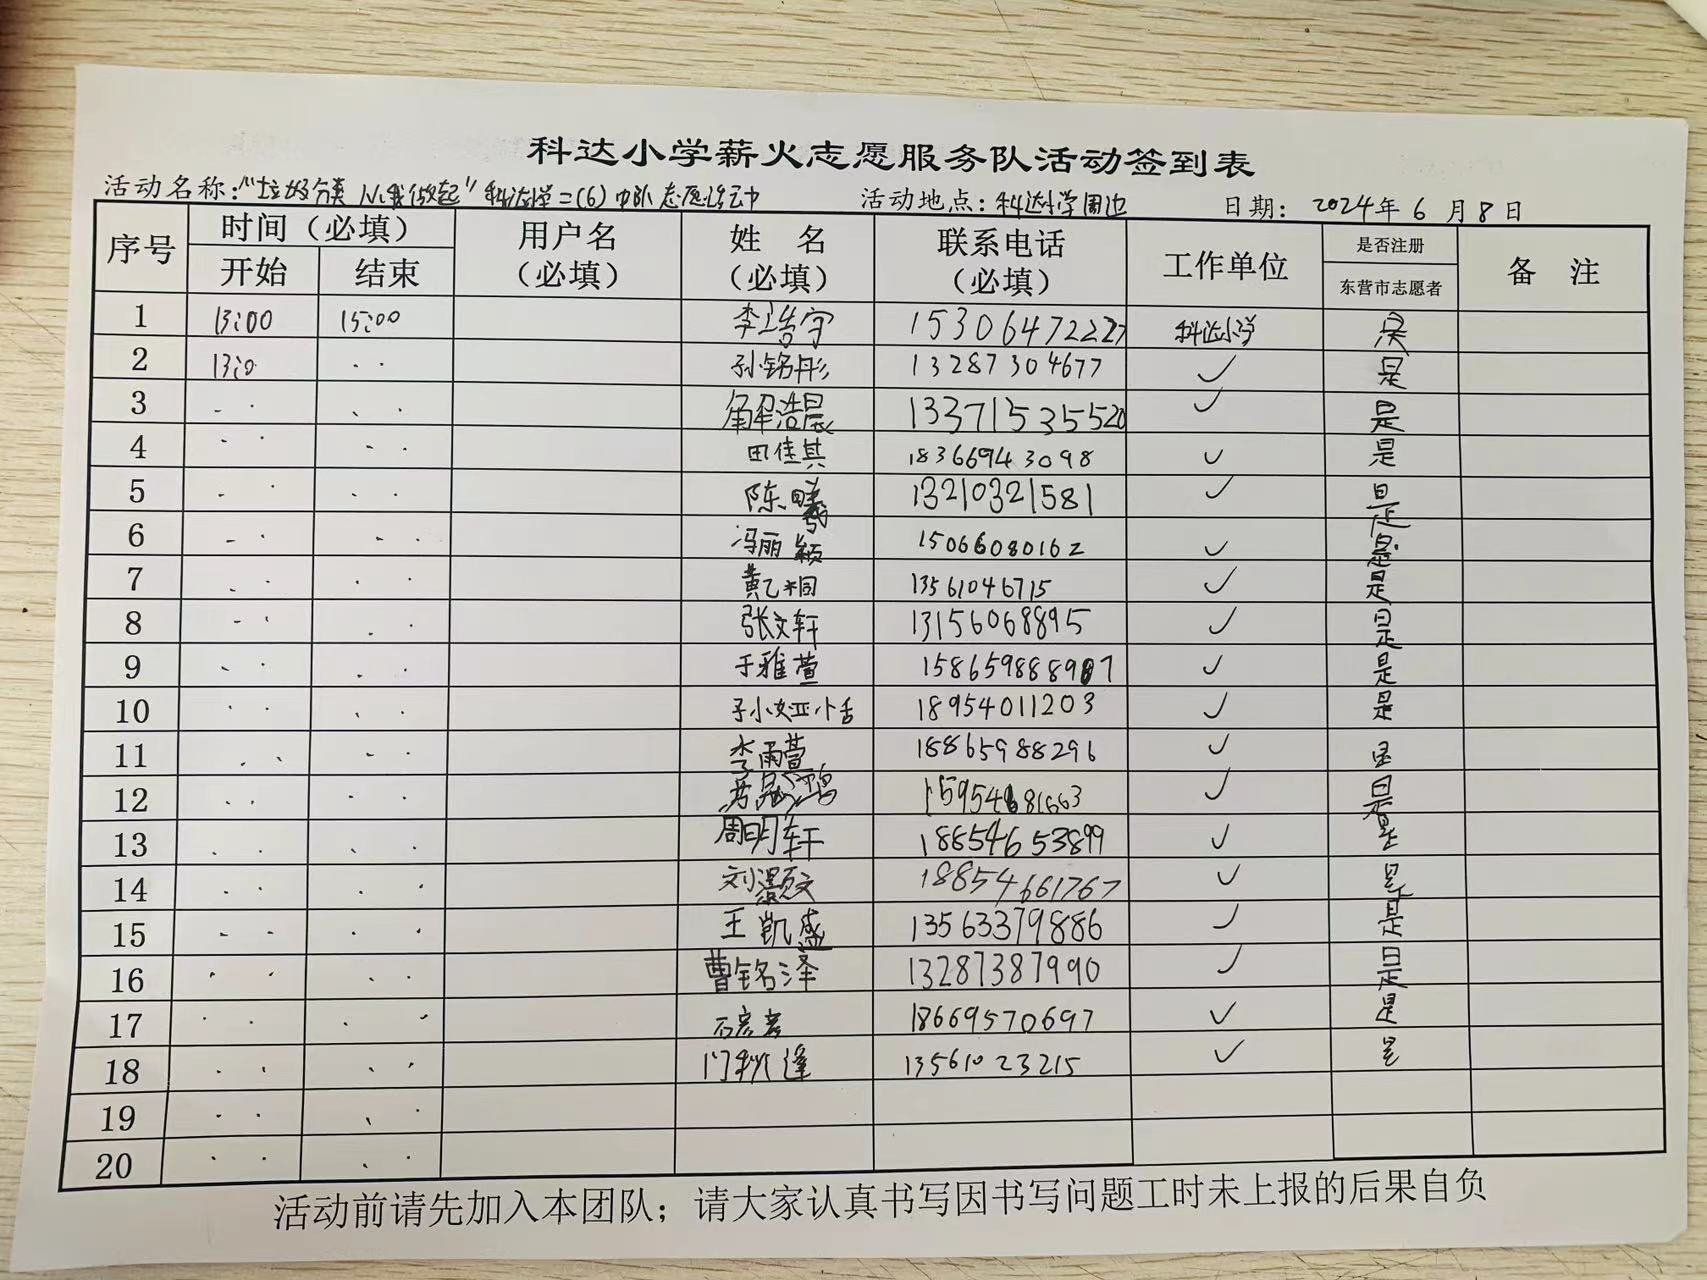 科达小学薪火志愿服务队活动签到表
活动名称：“垃圾分类 从我做起” 科达小学二(6)中队志愿活动 活动地点：科达小学周边 日期：2024年6月8日
序号 时间（必填） 用户名（必填） 姓 名（必填） 联系电话（必填） 工作单位 是否注册 备 注
开始 结束 东营市志愿者
1 13:00 15:00 李浩宇 15306472227 科达小学 是
2 13:0 · · 孙铭彤 13287304677 ✓ 是
3 · · · · 解浩晨 13371535520 ✓ 是
4 · · · · 田佳其 18366943098 ✓ 是
5 · · · · 陈曦 13210321581 ✓ 是
6 · · · · 冯丽颖 15066080162 ✓ 是
7 · · · · 黄乙桐 13561046715 ✓ 是
8 · · · · 张文轩 13156068895 ✓ 是
9 · · · · 于雅萱 ✓ 是
10 · · · · 18954011203 ✓ 是
11 · · · · 李雨萱 18865988296 ✓ 是
12 · · · · ✓ 是
13 · · · · 周明轩 18854653899 ✓ 是
14 · · · · 刘灏文 18854661767 ✓ 是
15 · · · · 王凯盛 13563379886 ✓ 是
16 · · · · 曹铭泽 13287387990 ✓ 是
17 · · · · 18669570697 ✓ 是
18 · · · · 13561023215 ✓ 是
19 · · ·
20 · · · ·
活动前请先加入本团队；请大家认真书写因书写问题工时未上报的后果自负